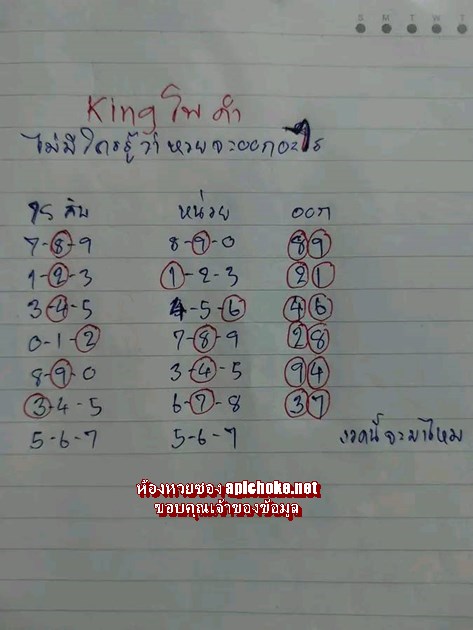 S M T W T
King โพดำ
ไม่มีใครรู้ว่าหวยจะออกอะไร
สิบ หน่วย ออก
7-8-9 8-9-0 89
1-2-3 1-2-3 21
3-4-5 4-5-6 46
0-1-2 7-8-9 28
8-9-0 3-4-5 94
3-4-5 6-7-8 37
5-6-7 5-6-7 งวดนี้จะมาไหม
ห้องหวยซอง apichoke.net
ขอบคุณเจ้าของข้อมูล